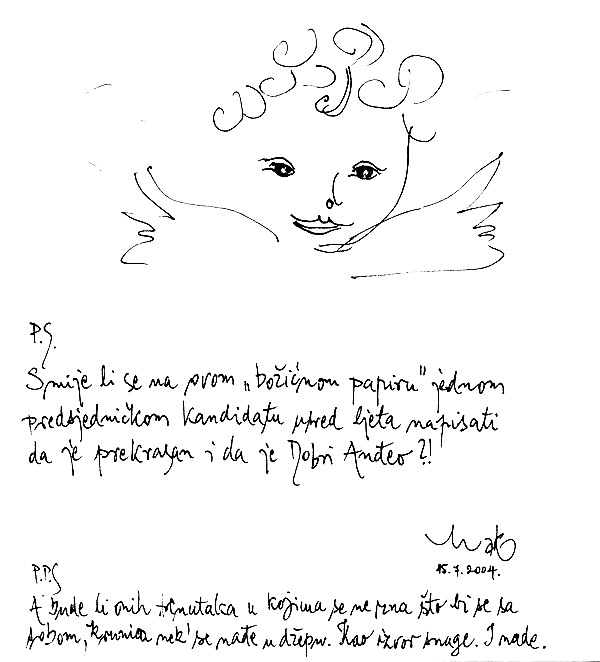 P.S.
Smije li se na ovom „božićnom papiru" jednom
predsjedničkom kandidatu usred ljeta napisati
da je prekrasan i da je Dobri Anđeo?!
15.7.2004.
P.P.S
A bude li onih trenutaka u kojima se ne zna što bi se sa
sobom, krunica nek' se nađe u džepu. Kao izvor snage. I nade.